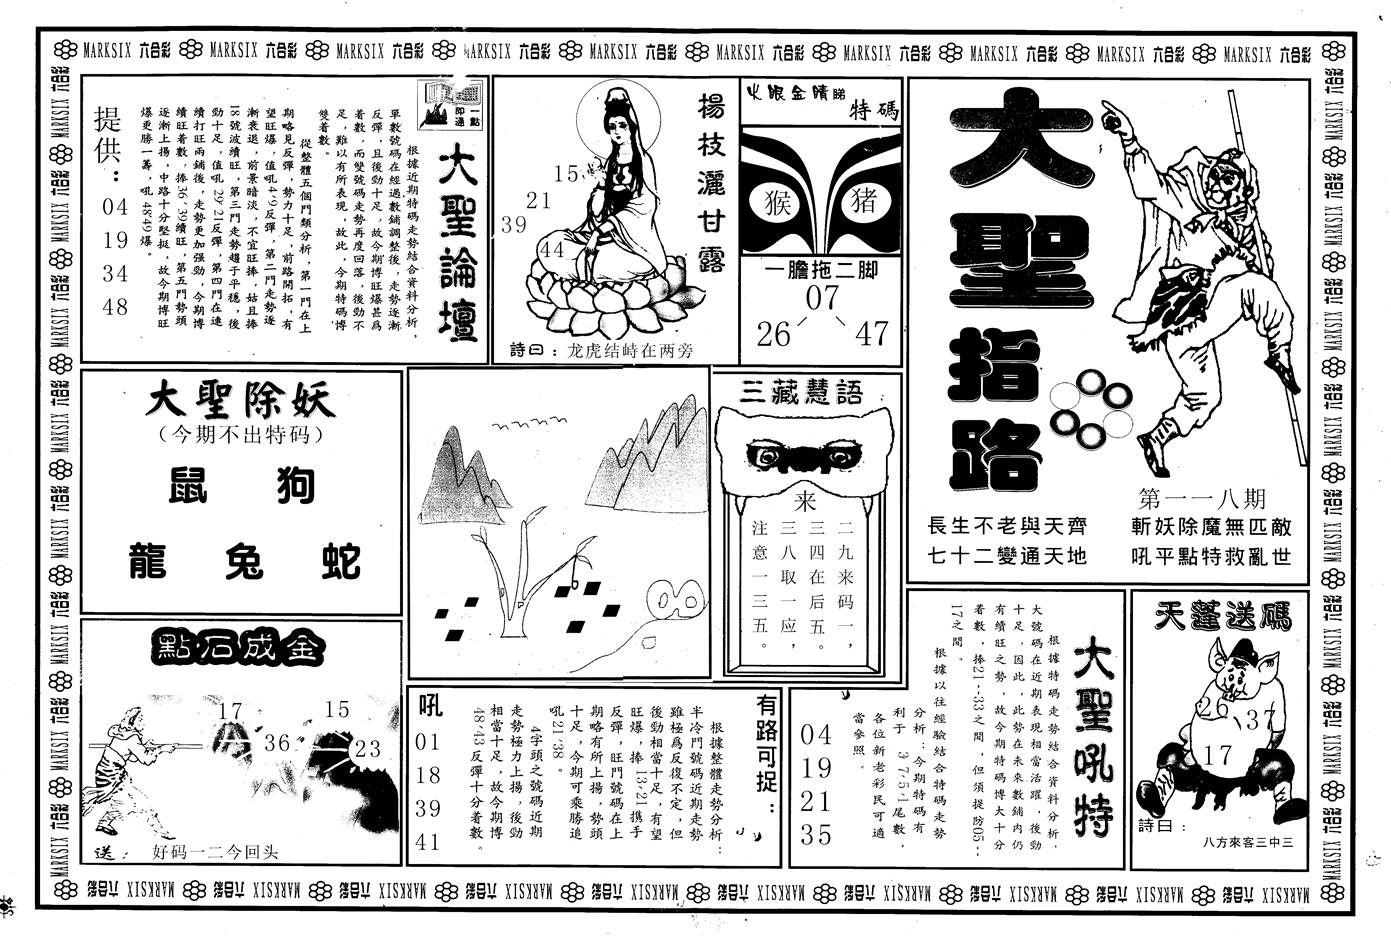 MARKSIX 六合彩 MARKSIX 六合彩 MARKSIX 六合彩 MARKSIX 六合彩 MARKSIX 六合彩 MARKSIX 六合彩 MARKSIX 六合彩 MARKSIX 六合彩 MARKSIX 六合彩 MARKSIX 六合彩
大聖指路
第一一八期
斬妖除魔無匹敵
吼平點特救亂世
長生不老與天齊
七十二變通天地
火眼金睛睇
特碼
猴 猪
一膽拖二脚
07
26 47
楊枝灑甘露
15
21
39
44
詩曰：龙虎结峙在两旁
一點即通
大聖論壇
根據近期特碼走勢結合資料分析，
單數號碼在經過數鋪調整後，走勢逐漸
反彈，且後勁十足，故今期博旺爆甚爲
着數，而雙號碼走勢再度回落，後勁不
足，難以有所表現，故此，今期特碼博
雙着數。
從整體五個門類分析，第一門在上
期略見反彈，勢力十足，前路開拓，有
望旺爆，值吼4·9反彈，第二門走勢逐
漸衰退，前景暗淡，不宜旺捧，姑且捧
18號波續旺，第三門走勢趨于平穩，後
勁十足，值吼29·21反彈，第四門在連
續打旺兩鋪後，走勢更加强勁，今期博
續旺着數，捧36·39續旺，第五門勢頭
逐漸上揚，中路十分堅挺，故今期博旺
爆更勝一籌，吼48·49爆。
提供：
04
19
34
48
大聖除妖
（今期不出特码）
鼠 狗
龍 兔 蛇
三藏慧語
来
二九来码一，
三四在后五。
三八取一应，
注意一三五。
點石成金
17
36
15
23
送： 好码一二今回头
有路可捉：
根據整體走勢分析：
半冷門號碼近期走勢
雖極爲反復不定，但
後勁相當十足，有望
旺爆，捧13·21携手
反彈，旺門號碼在上
期略有所上揚，勢頭
十足，今期可乘勝追
吼21·38。
4字頭之號碼近期
走勢極力上揚，後勁
相當十足，故今期博
48·43反彈十分着數。
吼
01
18
39
41
大聖吼特
根據特碼走勢結合資料分析，
大號碼在近期表現相當活躍，後勁
十足，因此，此勢在未來數鋪内仍
有續旺之勢，故今期特碼博大十分
着數，捧21--33之間，但須提防05--
17之間。
根據以往經驗結合特碼走勢
分析：今期特碼有
利于 3·7·5·1尾數，
各位新老彩民可適
當參照。
04
19
21
35
天蓬送碼
26
37
17
詩曰：
八方來客三中三